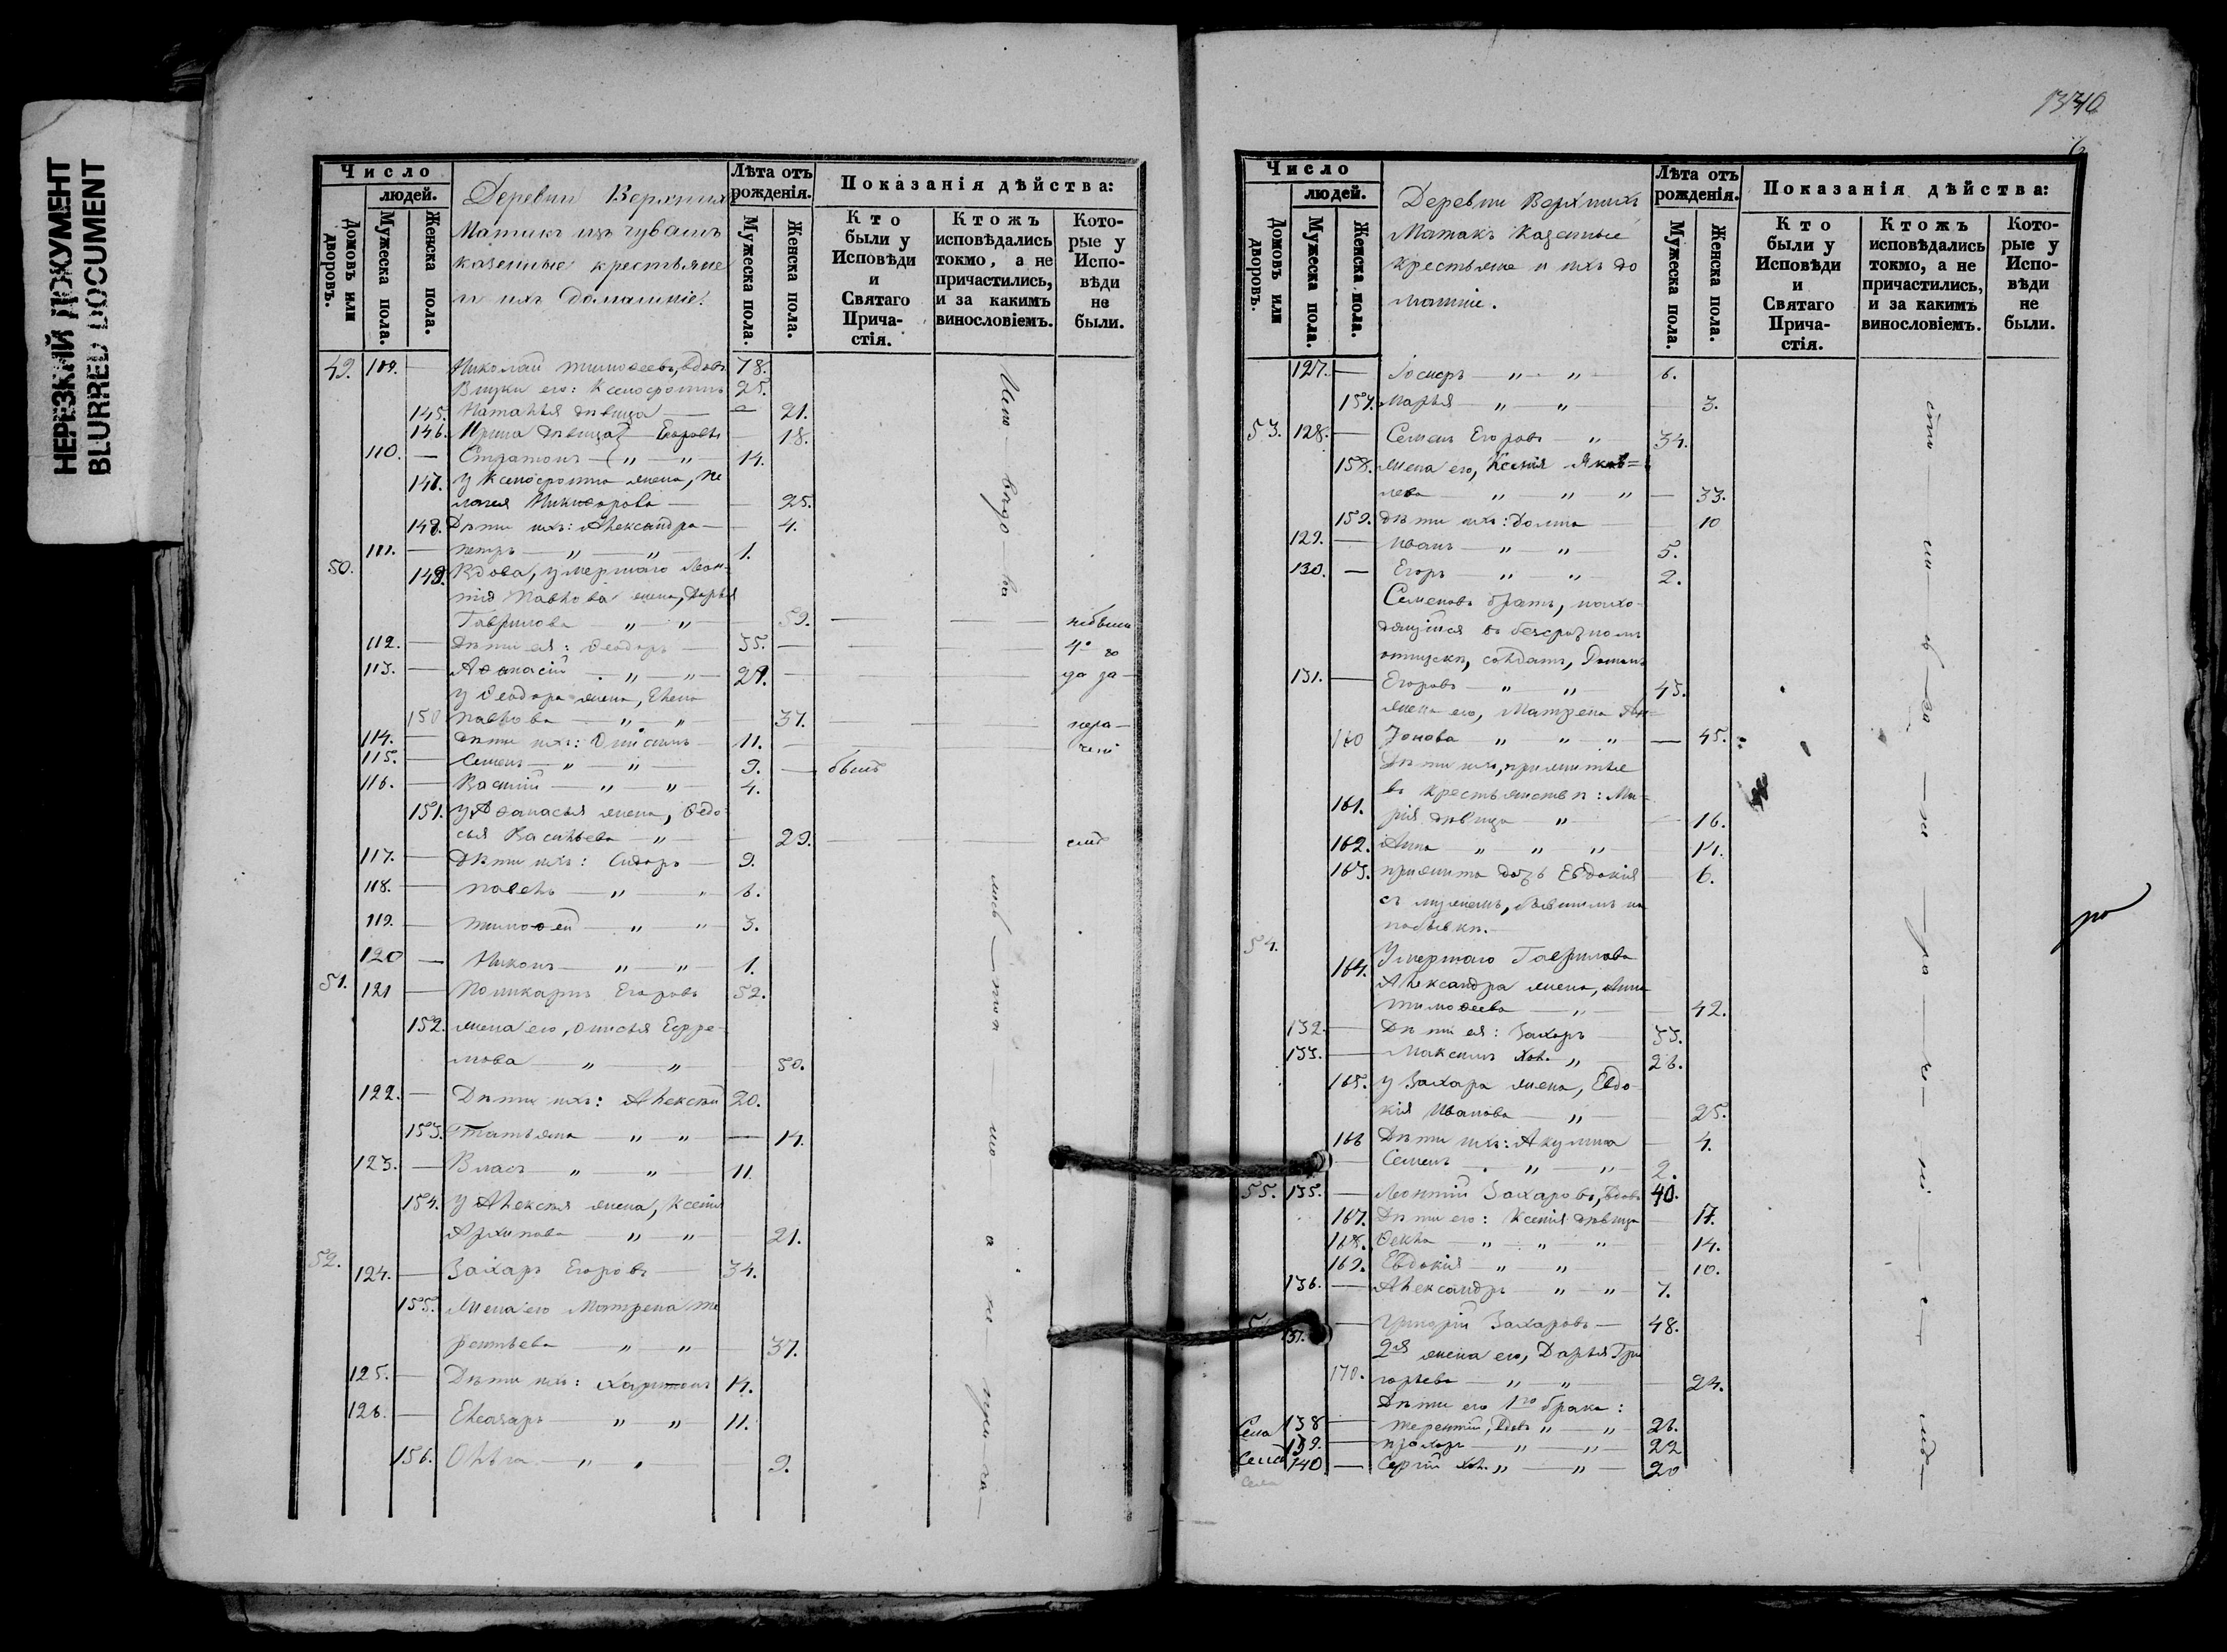 НЕРЕЗКИЙ ДОКУМЕНТ
BLURRED DOCUMENT
Число
людей.
Домовъ или дворовъ.
Мужеска пола.
Женска пола.
Деревни Верхнихъ
Матакъ изъ чувашъ
казенные крестьяне
и ихъ домашніе.
Лѣта отъ рожденія.
Мужеска пола.
Женска пола.
Показанія дѣйства:
Кто были у Исповѣди и Святаго Прича-стія.
Ктожъ исповѣдались токмо, а не причастились, и за какимъ винословіемъ.
Кото-рые у Испо-вѣди не были.
49. 109. — Николай Тимоѳеевъ, вдовъ 78.
Внуки его: Ксенофонтъ 25.
145. Наталья дѣвица — 21.
146. Ирина дѣвица Егоровы — 18.
110. — Стратонъ — „ — „ — 14.
147. У Ксенофонта жена, Пе
лагея Никифорова — 25.
148. Дѣти ихъ: Александра — 4.
111. — Петръ — „ — „ — 1.
50. 149. Вдова, умершаго Леон-
тія Павлова жена, Дарья
Гаврилова — „ — „ — 59. — небыли
112. — Дѣти ея: Ѳеодоръ — 35. —
113. — Аѳанасій — „ — „ — 29. —
У Ѳеодора жена, Елена
150 Павлова — „ — „ — 37. —
114. — Дѣти ихъ: Онисимъ — 11. —
115. — Семенъ — „ — „ — 9. — былъ
116. — Василій — „ — „ — 4.
151. У Аѳанасья жена, Ѳедо-
сья Васильева — „ — 29. —
117. — Дѣти ихъ: Сидоръ — 9.
118. — Павелъ — „ — „ 6.
119. — Тимоѳей — „ — „ 3.
120 — Никонъ — „ — „ — 1.
51. 121 — Поликарпъ Егоровъ 52.
152. жена его, Онисья Ефре-
мова — „ — „ — 50.
122. — Дѣти ихъ: Алексѣй 20.
153. Татьяна — „ — „ — 14.
123. — Власъ — „ — „ — 11.
154. У Алексѣя жена, Ксенія
Архипова — „ — „ — 21.
52. 124. — Захаръ Егоровъ — 34.
155. Жена его Матрена Те
рентьева — „ — „ — 37.
125. — Дѣти ихъ: Харитонъ 14.
126. — Елеазаръ — „ — „ — 11.
156. Ольга — „ — 9.
Число
людей.
Домовъ или дворовъ.
Мужеска пола.
Женска пола.
Деревни Верхнихъ
Матакъ казенные
крестьяне и ихъ до
машніе.
Лѣта отъ рожденія.
Мужеска пола.
Женска пола.
Показанія дѣйства:
Кто были у Исповѣди и Святаго Прича-стія.
Ктожъ исповѣдались токмо, а не причастились, и за какимъ винословіемъ.
Кото-рые у Испо-вѣди не были.
127. — Іосифъ — „ — „ — 6.
157. Марья — „ — „ — 3.
53. 128. — Семенъ Егоровъ — „ — 34.
158. жена его, Ксенія Яков=
лева — „ — „ — „ — 33.
159. Дѣти ихъ: Домна — 10
129. — Иванъ — „ — „ — 5.
130. — Егоръ — „ — „ — 2.
Семеновъ братъ, нахо-
дящійся въ безсрочномъ
отпускѣ, солдатъ,
131. — Егоровъ — „ — „ — 45.
жена его, Матрена
160 „ — „ — „ — 45.
Дѣти ихъ, прижитые
въ крестьянствѣ: Ма-
161. рія дѣвица — „ — 16.
162. Анна — „ — „ — „ — 14.
163. прижита дочь Евдокія — 6.
съ мужемъ, бывшимъ на
побывкѣ. —
54. Умершаго Гаврилова
164. Александра жена, Анна
Тимоѳеева — „ — 42.
132. — Дѣти ея: Захаръ — 33.
133. — Максимъ хол. „ — 26.
165. У Захара жена, Евдо-
кія Иванова — „ — 25.
166 Дѣти ихъ: Акулина — 4.
— Семенъ — „ — „ — 2.
55. 135. — Леонтій Захаровъ, вдовъ 40.
167. Дѣти его: Ксенія дѣвица — 17.
168. Ѳекла — „ — „ — „ — 14.
169. Евдокія — „ — „ — 10.
136. — Александръ — „ — „ — 7.
— Григорій Захаровъ — 48.
2я жена его, Дарья Гри
170. горьева — „ — „ — 24.
Дѣти его 1го брака:
138 — Терентій, вдовъ „ — „ — 26.
139. — Прохоръ — „ — „ — 22
140 — Сергій хол. „ — „ — 20